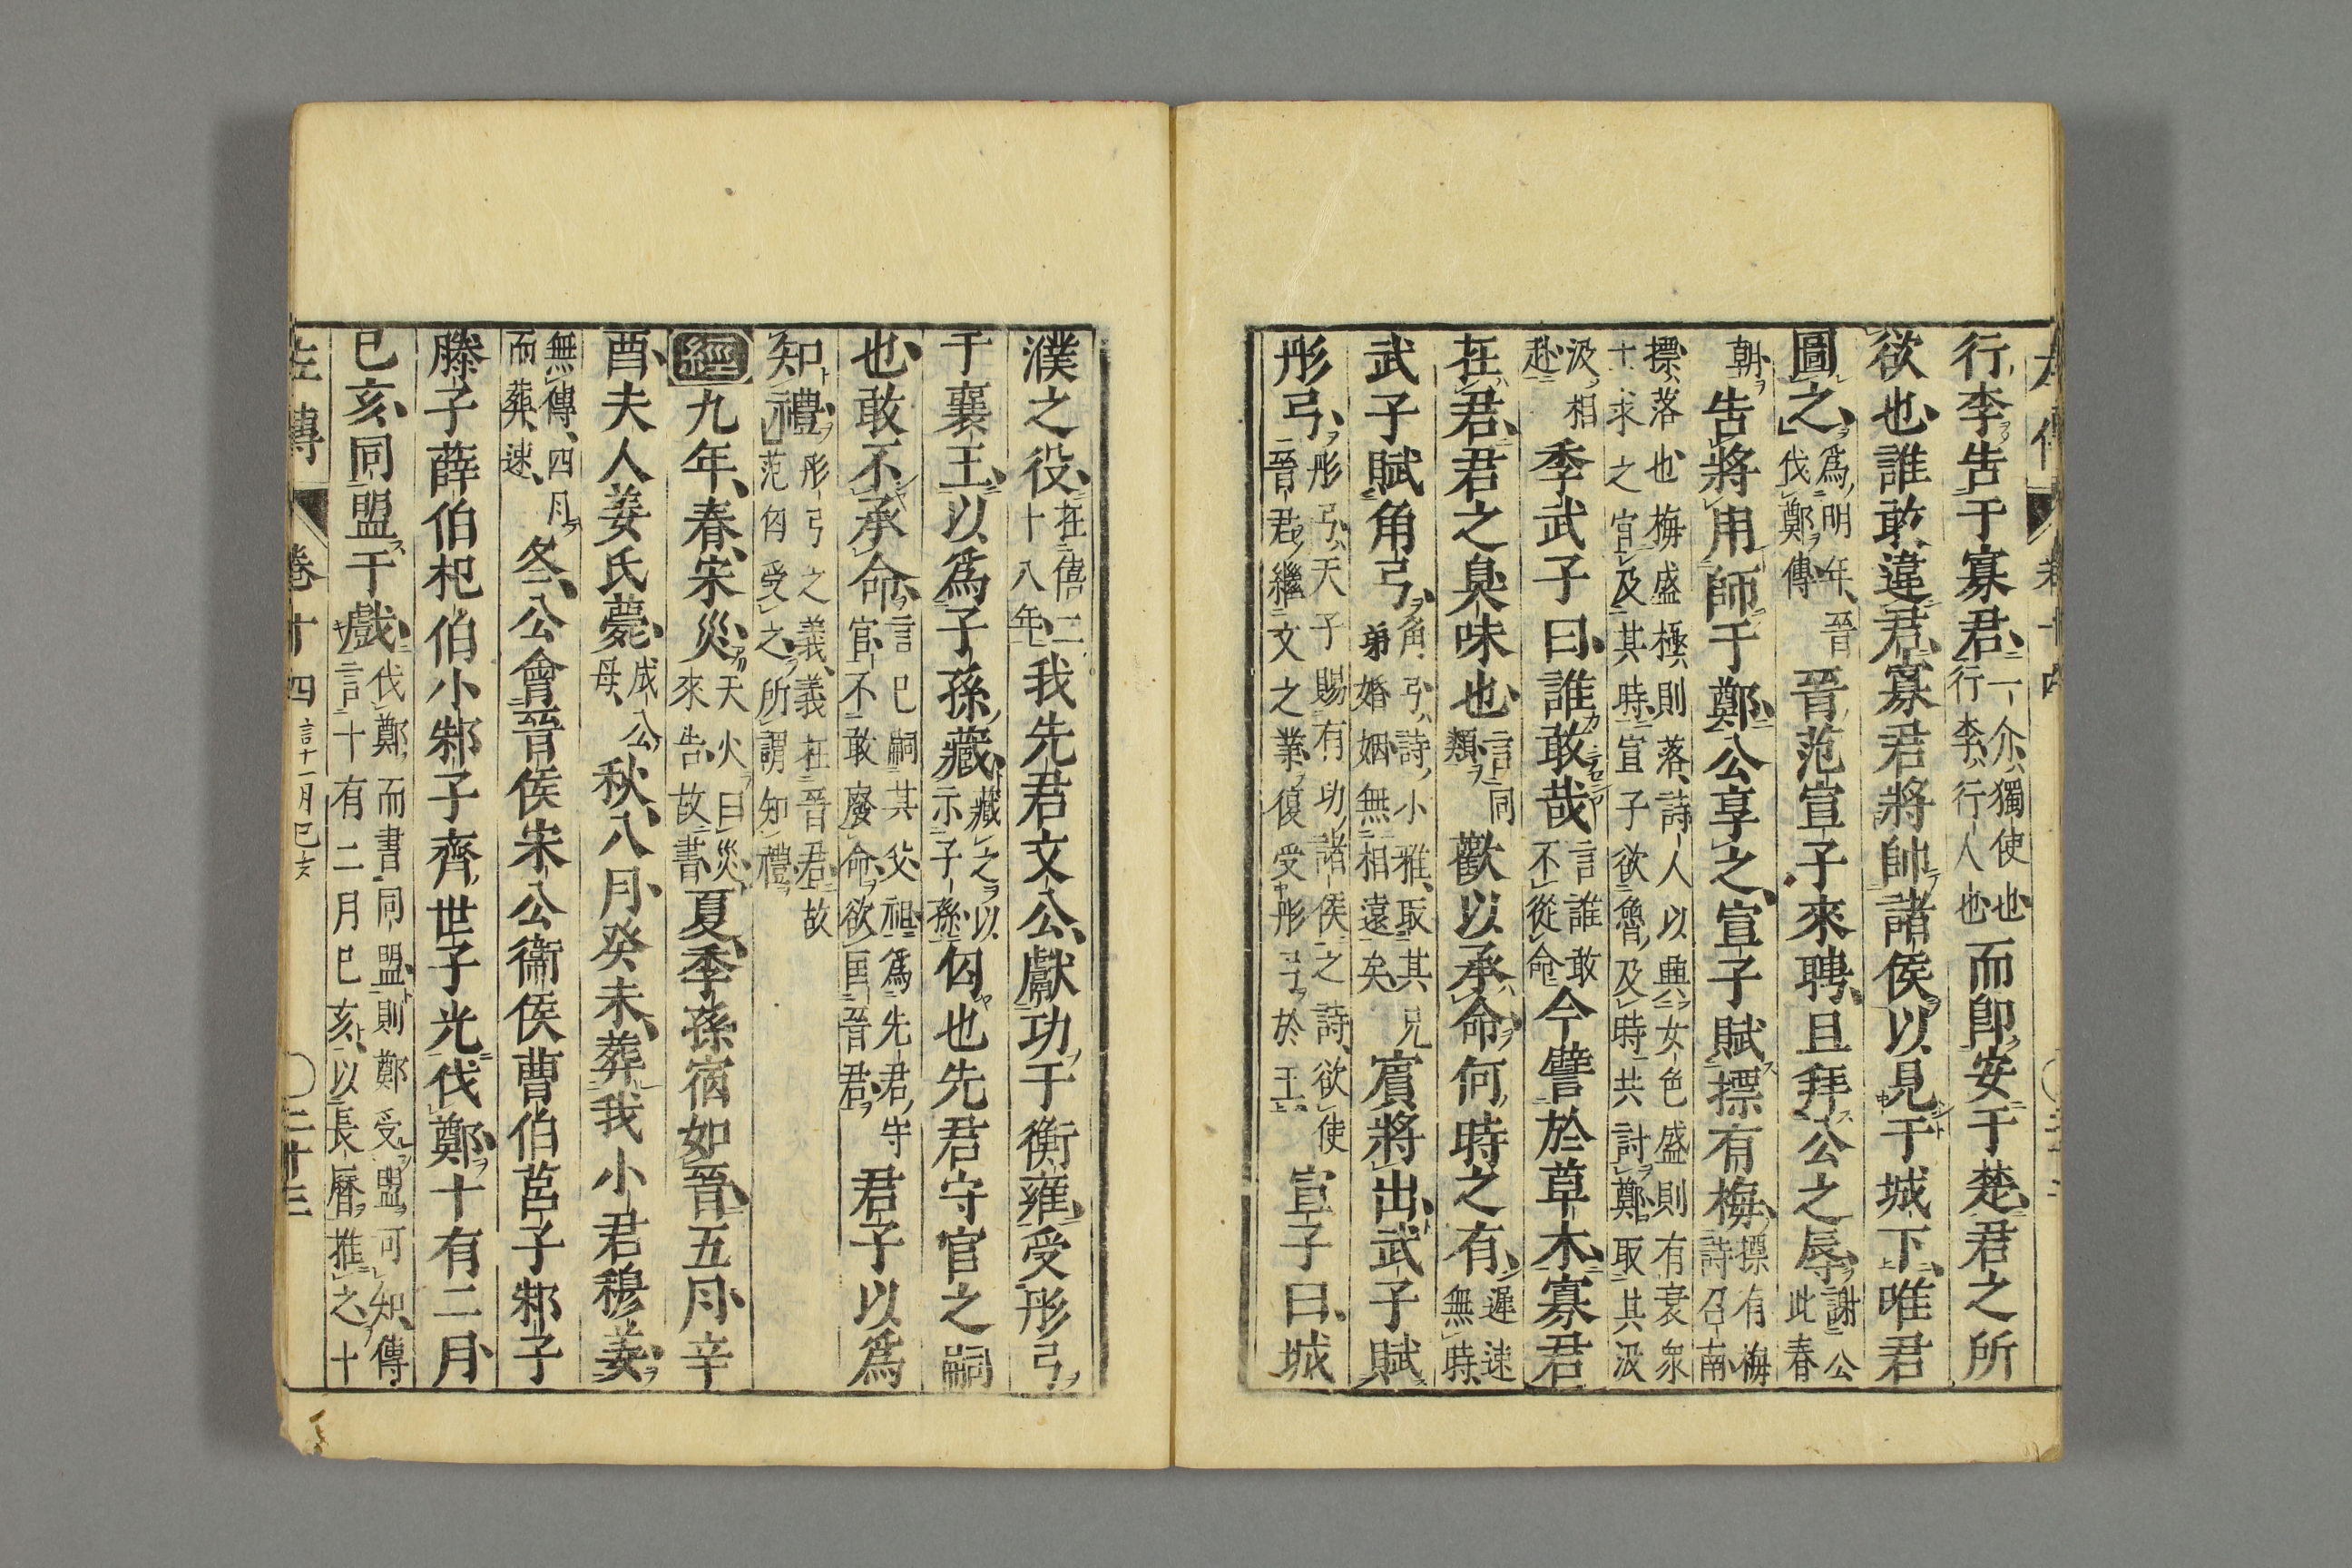 行李告于寡君一介獨使也行李行人也而卽安于楚君之所
欲也誰敢違君寡君將帥諸侯以見于城下唯君
圖之爲明年晉伐鄭傳晉范宣子來聘且拜公之辱謝公此春
朝告將用師于鄭公享之宣子賦摽有梅摽有梅詩召南
摽落也梅盛極則落詩人以興女色盛則有衰衆十求之宜及其時宣子欲魯及時共討鄭取其汲
汲相赴季武子曰誰敢哉言誰敢不從命今譬於草木寡君
在君君之臭味也言同類歡以承命何時之有遲速無時
武子賦角弓角弓詩小雅取其兄弟婚姻無相遠矣賓將出武子賦
彤弓彤弓天子賜有功諸侯之詩欲使晉君繼文之業復受彤弓於王宣子曰城
濮之役在僖二十八年我先君文公獻功于衡雍受彤弓
于襄王以爲子孫藏藏之以示子孫匃也先君守官之嗣
也敢不承命言巳嗣其父祖爲先君守官不敢廢命欲匡晉君君子以爲
知禮彤弓之義義在晉君故范匃受之所謂知禮
經九年春宋災天火曰災來告故書夏季孫宿如晉五月辛
酉夫人姜氏薨成公母秋八月癸未葬我小君穆姜
無傳四月而葬速冬公會晉侯宋公衞侯曹伯莒子邾子
滕子薛伯杞伯小邾子齊世子光伐鄭十有二月
巳亥同盟于戲伐鄭而書同盟則鄭受盟可知傳言十有二月巳亥以長曆推之十
左傳 卷十四 言十一月巳亥 二十三